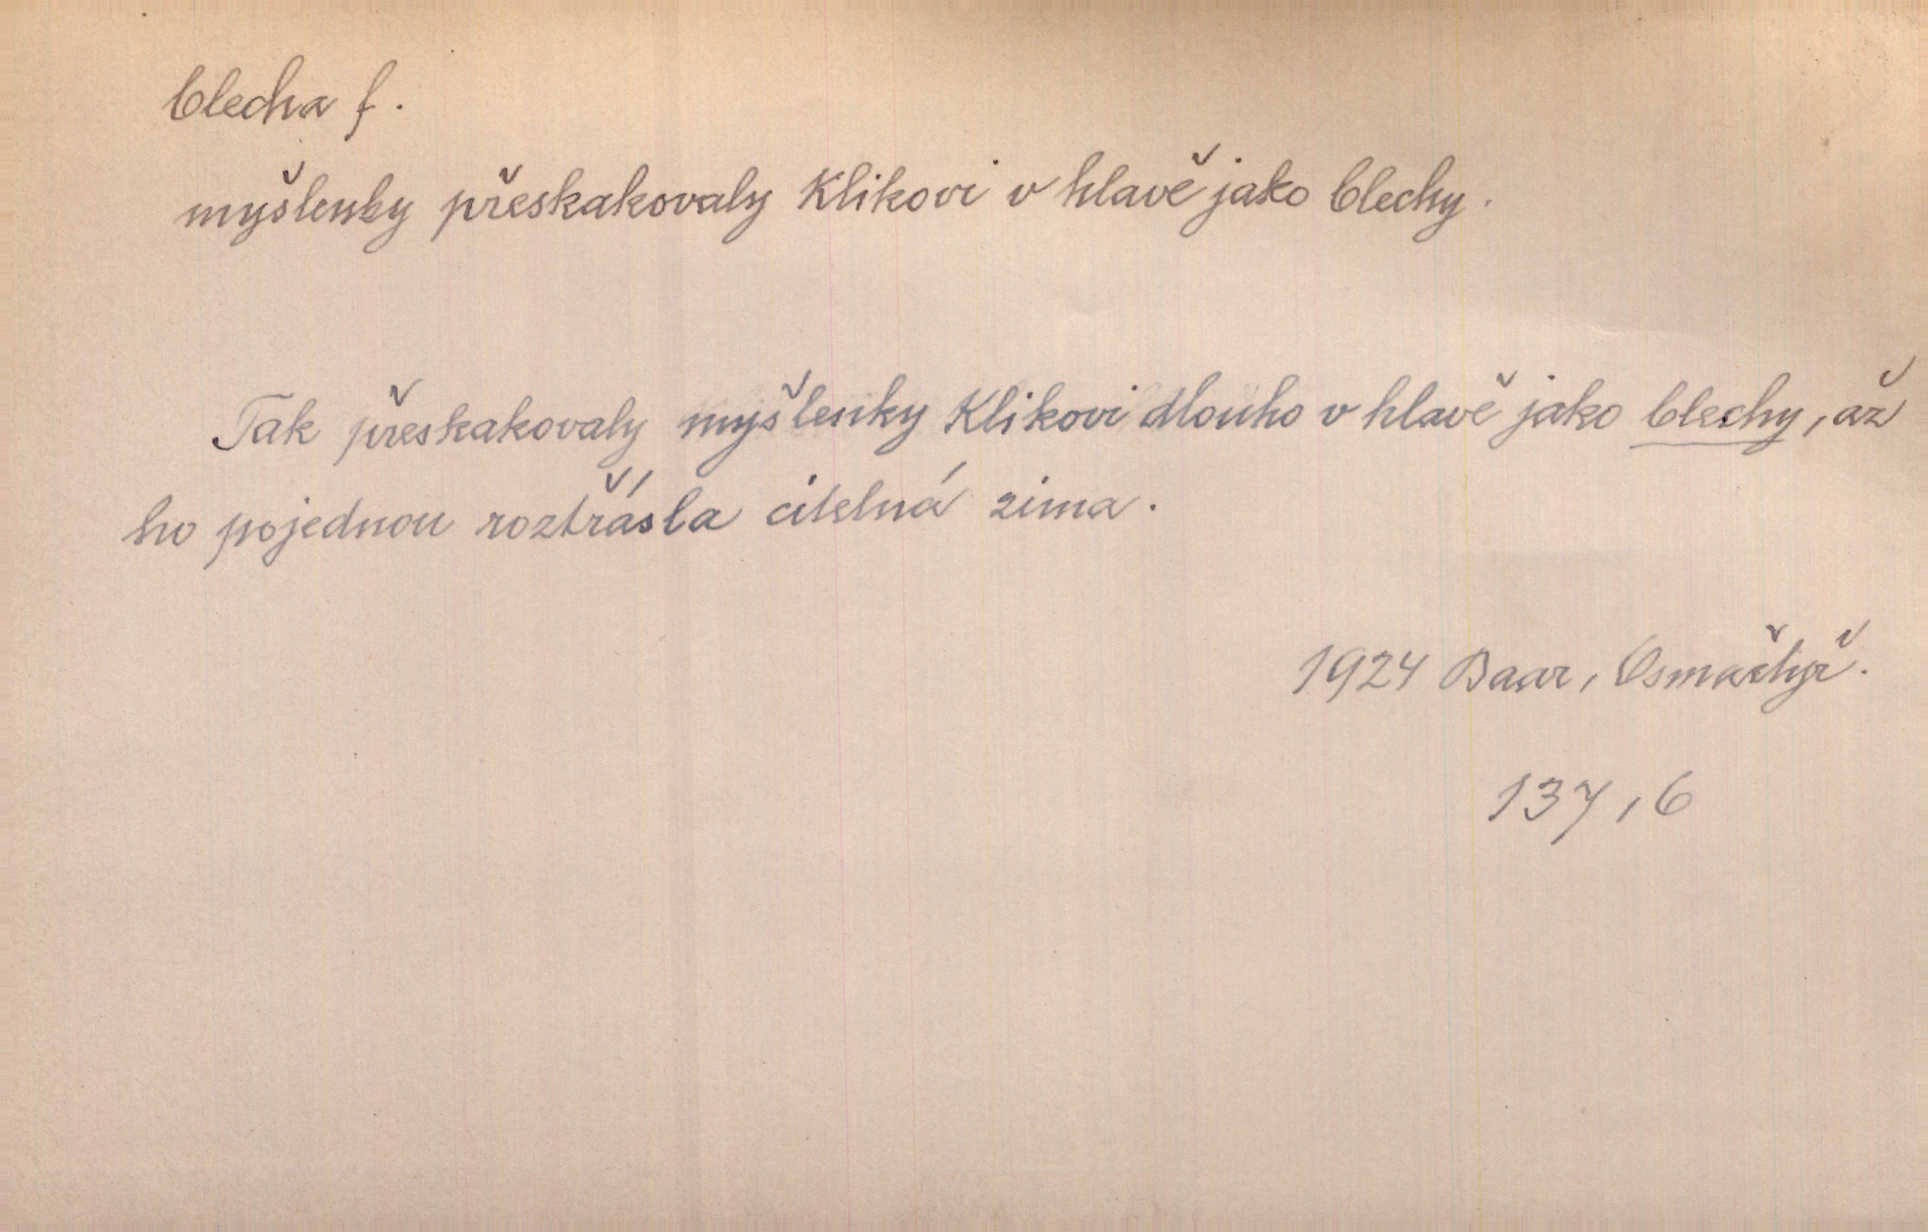 blecha f.
myšlenky přeskakovaly Klikovi v hlavě jako blechy.
Tak přeskakovaly myšlenky Klikovi dlouho v hlavě jako blechy, až
ho pojednou roztřásla citelná zima.
1924 Baar, Osmačtyř.
137,6